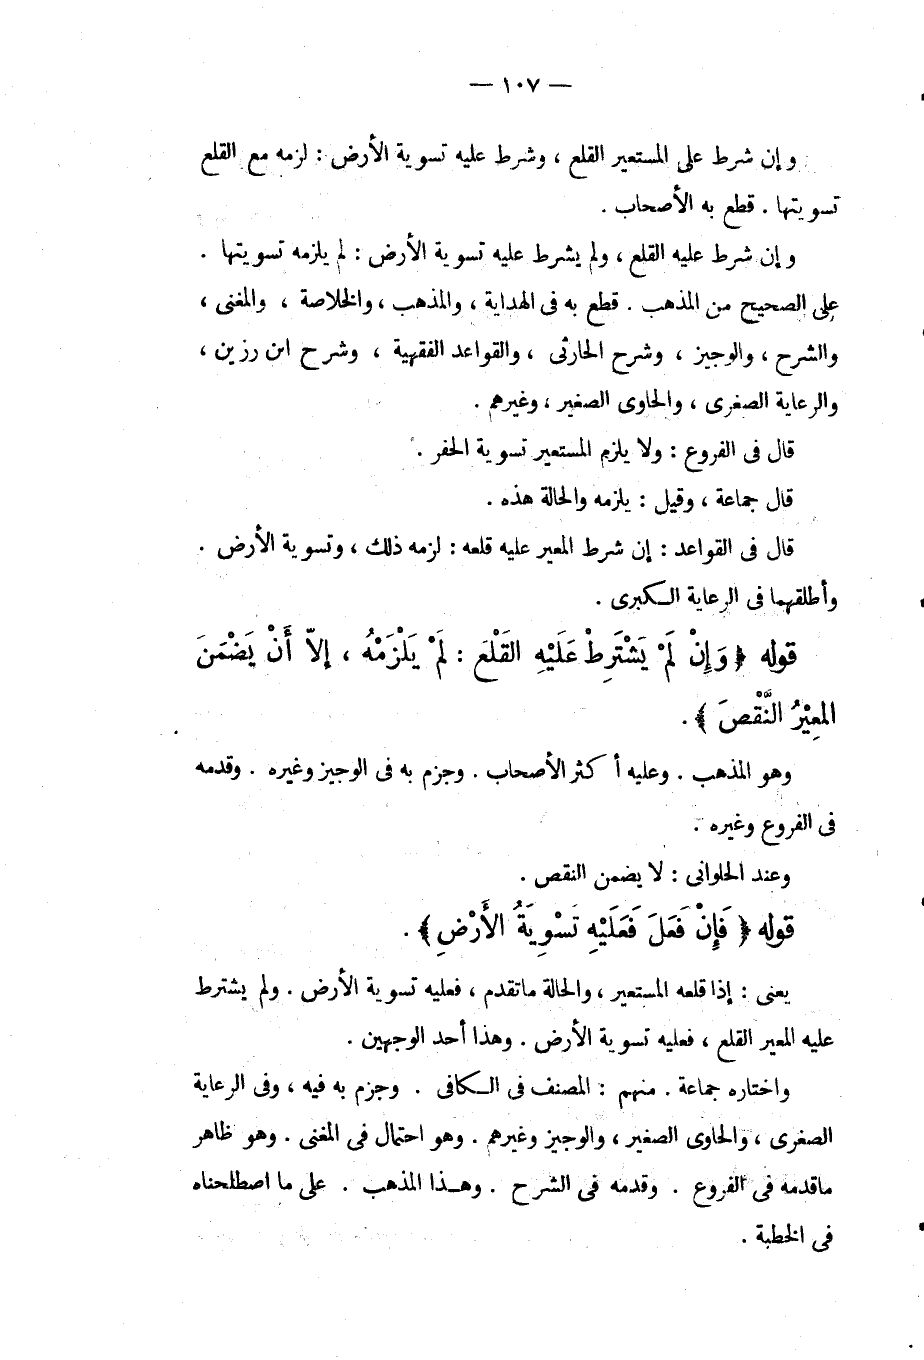 — ١٠٧ —
وإن شرط على المستعير القلع ، وشرط عليه تسوية الأرض : لزمه مع القلع
تسويتها . قطع به الأصحاب .
وإن شرط عليه القلع ، ولم يشرط عليه تسوية الأرض : لم يلزمه تسويتها .
على الصحيح من المذهب . قطع به فى الهداية ، والمذهب ، والخلاصة ، والمغنى ،
والشرح ، والوجيز ، وشرح الحارثى ، والقواعد الفقهية ، وشرح ابن رزين ،
والرعاية الصغرى ، والحاوى الصغير ، وغيرهم .
قال فى الفروع : ولا يلزم المستعير تسوية الحفر .
قال جماعة ، وقيل : يلزمه والحالة هذه .
قال فى القواعد : إن شرط المعير عليه قلعه : لزمه ذلك ، وتسوية الأرض .
وأطلقهما فى الرعاية الكبرى .
قوله ﴿ وَإِنْ لَمْ يَشْتَرِطْ عَلَيْهِ القَلْعَ : لَمْ يَلْزَمْهُ ، إلاّ أَنْ يَضْمَنَ
المعِيْرُ النَّقْصَ ﴾ .
وهو المذهب . وعليه أكثر الأصحاب . وجزم به فى الوجيز وغيره . وقدمه
فى الفروع وغيره .
وعند الحلوانى : لا يضمن النقص .
قوله ﴿ فَإِنْ فَعَلَ فَعَلَيْهِ تَسْوِيَةُ الأَرْضِ ﴾ .
يعنى : إذا قلعه المستعير ، والحالة ماتقدم ، فعليه تسوية الأرض . ولم يشترط
عليه المعير القلع ، فعليه تسوية الأرض . وهذا أحد الوجهين .
واختاره جماعة . منهم : المصنف فى الكافى . وجزم به فيه ، وفى الرعاية
الصغرى ، والحاوى الصغير ، والوجيز وغيرهم . وهو احتمال فى المغنى . وهو ظاهر
ماقدمه فى الفروع . وقدمه فى الشرح . وهذا المذهب . على ما اصطلحناه
فى الخطبة .